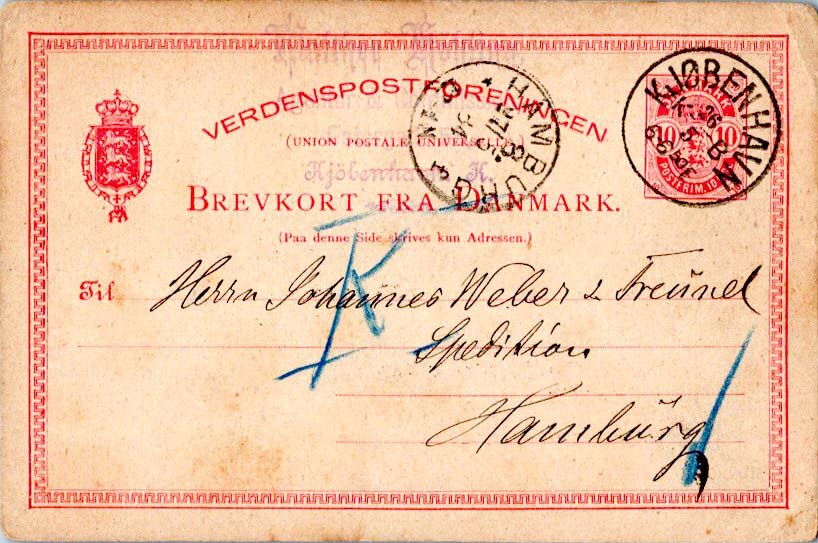 VERDENSPOSTFORENINGEN
(UNION POSTALE UNIVERSELLE.)
Kjöbenhavn K.
BREVKORT FRA DANMARK.
(Paa denne Side skrives kun Adressen.)
HAMBURG
KJØBENHAVN
10 10
POSTFRIM.
Til
Herrn Johannes Weber & Freund
Spedition
Hamburg